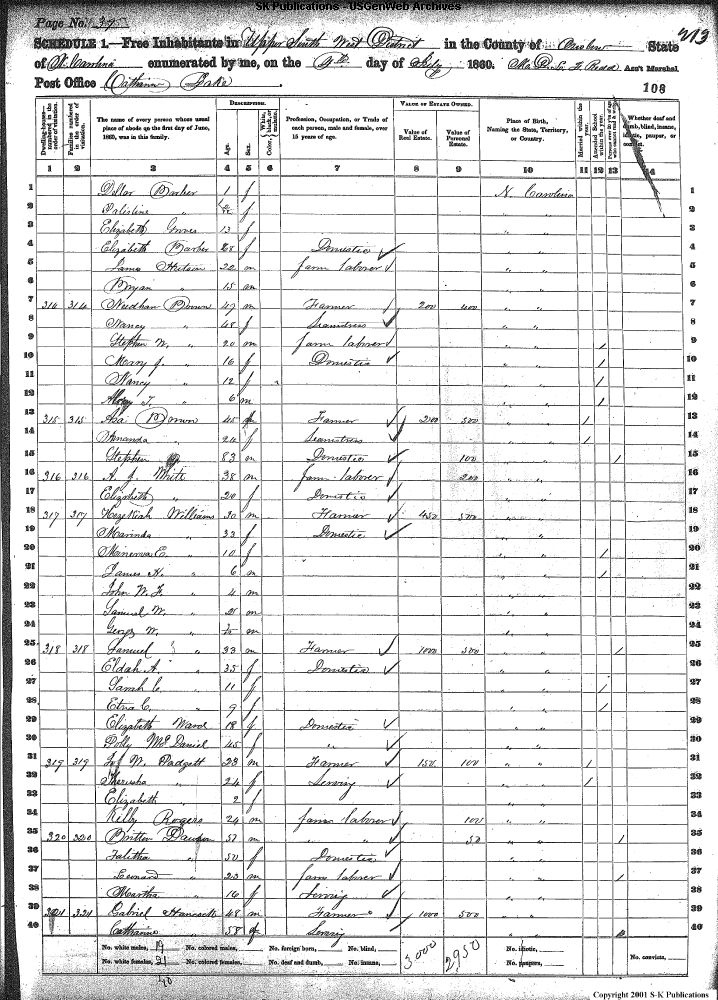 SK Publications - USGenWeb Archives
Page No. 37
SCHEDULE 1.—Free Inhabitants in Upper South West District in the County of Onslow State
of N. Carolina enumerated by me, on the 9th day of July 1860. Ass't Marshal.
Post Office Catharine Lake
213
108
Dwelling-houses—numbered in the order of visitation.
Families numbered in the order of visitation.
The name of every person whose usual place of abode on the first day of June, 1860, was in this family.
DESCRIPTION.
Age.
Sex.
Color, White, black, or mulatto.
Profession, Occupation, or Trade of each person, male and female, over 15 years of age.
VALUE OF ESTATE OWNED.
Value of Real Estate.
Value of Personal Estate.
Place of Birth, Naming the State, Territory, or Country.
Married within the year.
Attended School within the year.
Whether deaf and dumb, blind, insane, idiotic, pauper, or convict.
1 2 3 4 5 6 7 8 9 10 11 12 13 14
1 Barber 1 f N. Carolina 1
2 Palistine " f " " 2
3 Elizabeth 13 f " " 3
4 Elizabeth Barber 28 f Domestic " " 4
5 James 22 m farm laborer " " 5
6 Bryan " 15 m " " 6
7 314 314 Needham Brown 47 m Farmer 200 400 " " 7
8 Nancy " 48 f Seamstress " " 8
9 Stephen W. " 20 m farm laborer " " / 9
10 Mary J. " 16 f Domestic " " / 10
11 Nancy " 12 f " " / 11
12 T. " 6 m " " / 12
13 315 315 Asa Brown 45 Farmer 200 500 " " / 13
14 Amanda " 24 f Seamstress " " / 14
15 Stephen 83 m Domestic 100 " " / 15
16 316 316 A. J. White 38 m farm laborer 200 " " 16
17 Elizabeth " 20 f Domestic " " 17
18 317 317 Hezekiah Williams 30 m Farmer 450 500 " " 18
19 Marinda " 33 f Domestic " " 19
20 Minerva E. " 10 f " " / 20
21 James H. " 6 m " " / 21
22 John W. " 4 m " " 22
23 Samuel W. " 2 m " " 23
24 W. " m " " 24
25 318 318 Samuel " 33 m Farmer 1000 500 " " / 25
26 A. " 35 f Domestic " " 26
27 Sarah C. " 11 f " " / 27
28 Etna C. " 9 f " " / 28
29 Elizabeth Ward 18 f Domestic " " 29
30 Polly McDaniel 45 f " " " 30
31 319 319 W. Padgett 23 m Farmer 150 100 " " / 31
32 " 24 f Serving " " / 32
33 Elizabeth " 2 f " " 33
34 Kelly Rogers 24 m farm laborer 100 " " 34
35 320 320 Britton 51 m " " 50 " " / 35
36 Talitha " 50 f Domestic " " 36
37 Leonard " 23 m farm laborer " " / 37
38 Martha " 16 f Serving " " 38
39 321 321 Gabriel Hancock 48 m Farmer 1000 500 " " 39
40 Catharine " 58 f Serving " " 40
No. white males, 19 No. colored males, No. foreign born, No. blind, 3000 2950 No. idiotic,
No. white females, 21 No. colored females, No. deaf and dumb, No. insane, No. paupers, No. convicts,
40
Copyright 2001 S-K Publications